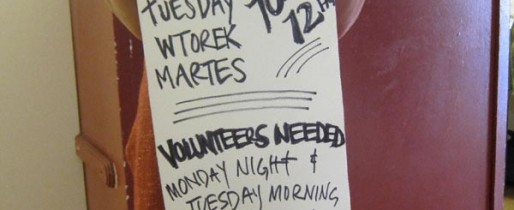 TUESDAY 10
WTOREK 12
MARTES
VOLUNTEERS NEEDED
MONDAY NIGHT &
TUESDAY MORNING